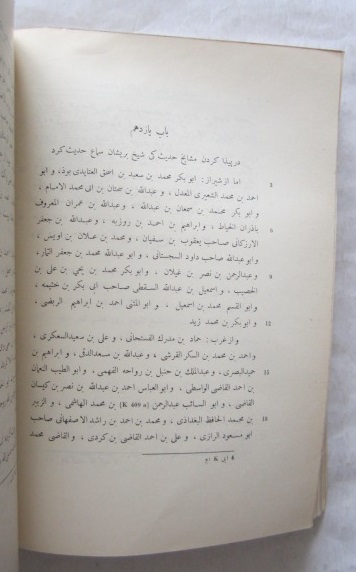 باب یازدهم
درپیدا کردن مشایخ حدیث کی شیخ بریشان سماع حدیث کرد
اما از شیراز: ابو بکر محمد بن سعید بن اسحق بوذ، و ابو 3
احمد بن محمد الشعیری المعدل، و عبدالله بن سمتان بن ابی محمد الامام،
و ابو بکر محمد بن سمعان بن عبدالله، و عبدالله بن عمران المعروف
باذران الخیاط، و ابراهیم بن احمد بن روزبه، و عبدالله بن جعفر 6
الارزکانی صاحب یعقوب بن سفیان، و محمد بن علان بن اویس،
و ابو عبدالله صاحب داود السجستانی، و ابو عبدالله محمد بن جعفر التمار،
و عبدالرحمن بن نصر بن غیلان، و ابو بکر محمد بن یحیی بن علی بن 9
الخصیب، و اسمعیل بن عبدالله السقطی صاحب ابی بکر بن خثیمه،
و ابو القسم محمد بن اسمعیل، و ابو المثنی احمد بن ابراهیم
و ابو بکر بن محمد زید 12
و از غرب: حماد بن مدرک الفستجانی، و علی بن سعید العسکری،
و احمد بن محمد بن السکر القرشی، و عبدالله بن سعدالدق، و ابراهیم بن
حمید البصری، و عبدالملک بن حنبل بن رواحه الفهمی، و ابو الطیب النعمان 15
بن احمد القاضی الواسطی، و ابو العباس احمد بن عبدالله بن نصر بن کیسان
القاضی، و ابو السائب عبدالرحمن [K 409 a] بن محمد الهاشمی، و الزبیر
بن محمد الحافظ البغدادی، و محمد بن احمد بن راشد الاصفهانی صاحب 18
ابو مسعود الرازی، و علی بن احمد القاضی بن کردی، و القاضی محمد
4 ابی K ابو